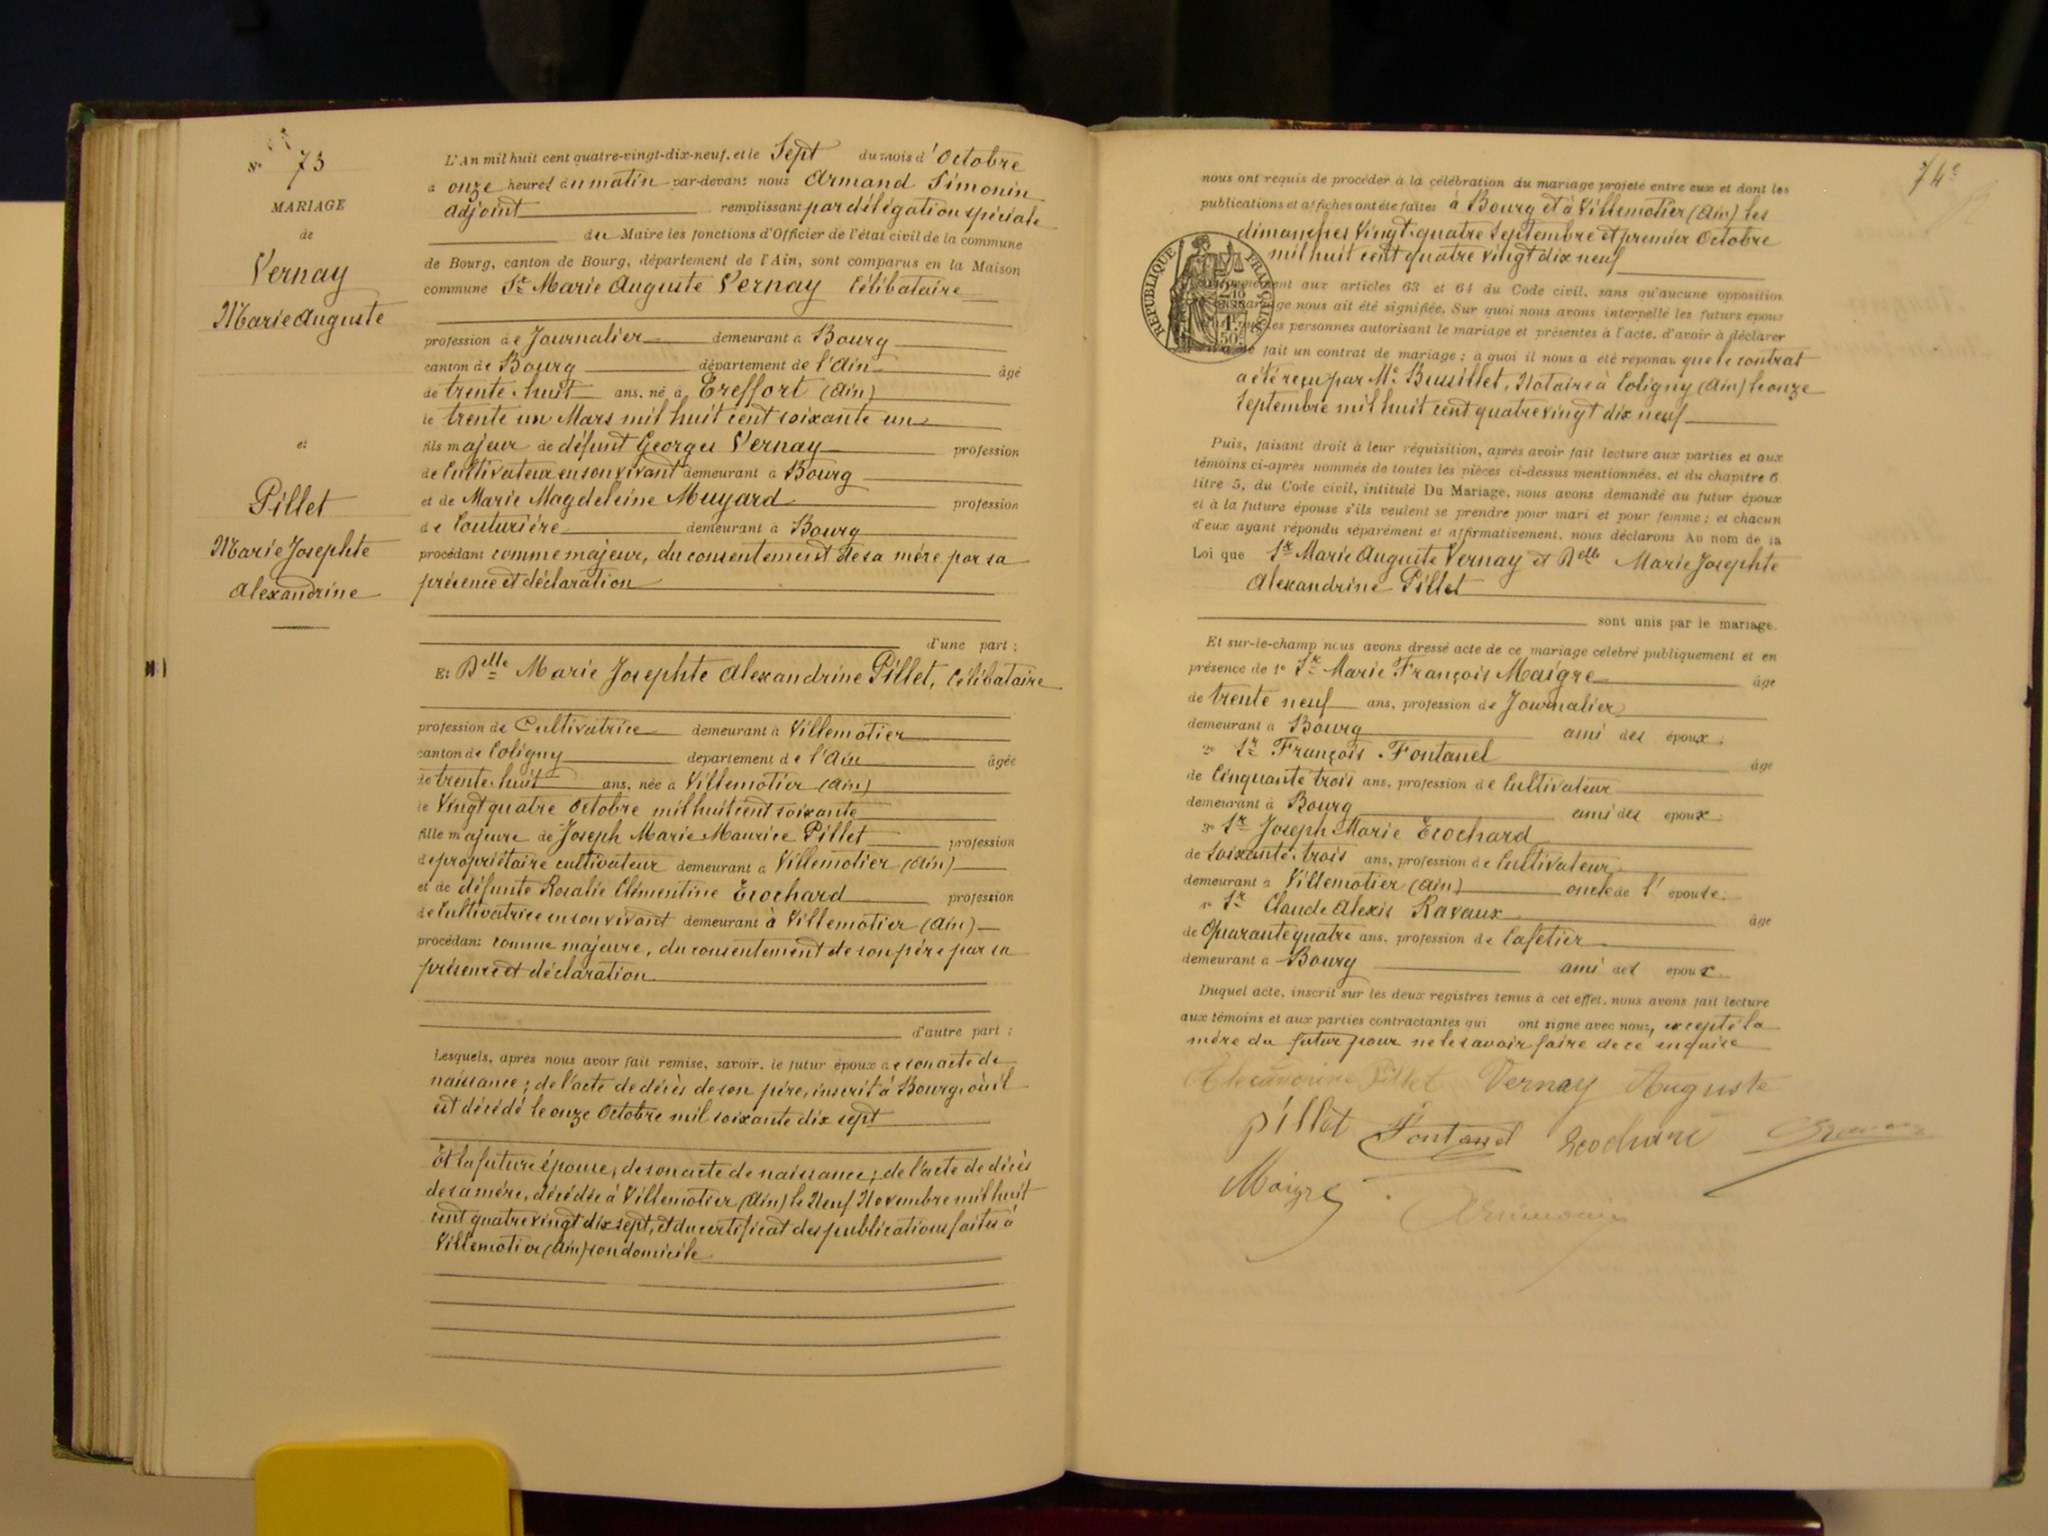 N° 73
MARIAGE
de
Vernay
Marie Auguste
et
Pillet
Marie Josephte
Alexandrine
L'An mil huit cent quatre-vingt-dix-neuf, et le Sept du mois d'Octobre
à onze heures du matin par-devant nous Armand Simonin
Adjoint remplissant par délégation spéciale
du Maire les fonctions d'Officier de l'état civil de la commune
de Bourg, canton de Bourg, département de l'Ain, sont comparus en la Maison
commune Sr Marie Auguste Vernay Célibataire
profession de Journalier demeurant à Bourg
canton de Bourg département de l'Ain âgé
de trente-huit ans, né à Treffort (Ain)
le trente un Mars mil huit cent soixante un
fils majeur de défunt Georges Vernay profession
de Cultivateur en son vivant demeurant à Bourg
et de Marie Magdeleine Muyard profession
de Couturière demeurant à Bourg
procédant comme majeur, du consentement de sa mère par sa
présence et déclaration
d'une part :
Et Delle Marie Josephte Alexandrine Pillet, Célibataire
profession de Cultivatrice demeurant à Villemotier
canton de Coligny département de l'Ain âgée
de trente-huit ans, née à Villemotier (Ain)
le Vingt quatre Octobre mil huit cent soixante
fille majeure de Joseph Marie Maurice Pillet profession
de propriétaire cultivateur demeurant à Villemotier (Ain)
et de défunte Rosalie Clémentine Ecochard profession
de Cultivatrice en son vivant demeurant à Villemotier (Ain)
procédant comme majeure, du consentement de son père par sa
présence et déclaration
d'autre part :
Lesquels, après nous avoir fait remise, savoir, le futur époux de son acte de
naissance ; de l'acte de décès de son père, inscrit à Bourg, où il
est décédé le onze Octobre mil soixante dix sept
Et la future épouse, de son acte de naissance ; de l'acte de décès
de sa mère, décédée à Villemotier (Ain) le Neuf Novembre mil huit
cent quatre vingt dix sept, et du certificat des publications faites à
Villemotier (Ain) son domicile
74e
nous ont requis de procéder à la célébration du mariage projeté entre eux et dont les
publications et affiches ont été faites à Bourg et à Villemotier (Ain) les
dimanches Vingt-quatre Septembre et premier Octobre
mil huit cent quatre vingt dix neuf
RÉPUBLIQUE FRANÇAISE
aux articles 63 et 64 du Code civil, sans qu'aucune opposition
nous ait été signifiée. Sur quoi nous avons interpellé les futurs époux
les personnes autorisant le mariage et présentes à l'acte, d'avoir à déclarer
fait un contrat de mariage ; à quoi il nous a été répondu que le contrat
a été reçu par Me Bussillet, Notaire à Coligny (Ain) le onze
Septembre mil huit cent quatre vingt dix neuf
Puis, faisant droit à leur réquisition, après avoir fait lecture aux parties et aux
témoins ci-après nommés de toutes les pièces ci-dessus mentionnées, et du chapitre 6
titre 5, du Code civil, intitulé Du Mariage, nous avons demandé au futur époux
et à la future épouse s'ils veulent se prendre pour mari et pour femme ; et chacun
d'eux ayant répondu séparément et affirmativement, nous déclarons Au nom de la
Loi que Sr Marie Auguste Vernay et Delle Marie Josephte
Alexandrine Pillet
sont unis par le mariage.
Et sur-le-champ nous avons dressé acte de ce mariage célébré publiquement et en
présence de 1° Sr Marie François Maigre âgé
de trente neuf ans, profession de Journalier
demeurant à Bourg ami des époux ;
2° Sr François Fontanel âgé
de Cinquante trois ans, profession de Cultivateur
demeurant à Bourg ami des époux
3° Sr Joseph Marie Ecochard
de soixante-trois ans, profession de Cultivateur
demeurant à Villemotier (Ain) oncle de l'épouse.
Sr Claude Alexis Ravaux âgé
de Quarante quatre ans, profession de Cafetier
demeurant à Bourg ami des époux
Duquel acte, inscrit sur les deux registres tenus à cet effet, nous avons fait lecture
aux témoins et aux parties contractantes qui ont signé avec nous, excepté la
mère du futur pour ne le savoir faire de ce enquise
Alexandrine Pillet Vernay Auguste
Pillet Fontanel Ecochard
Maigre